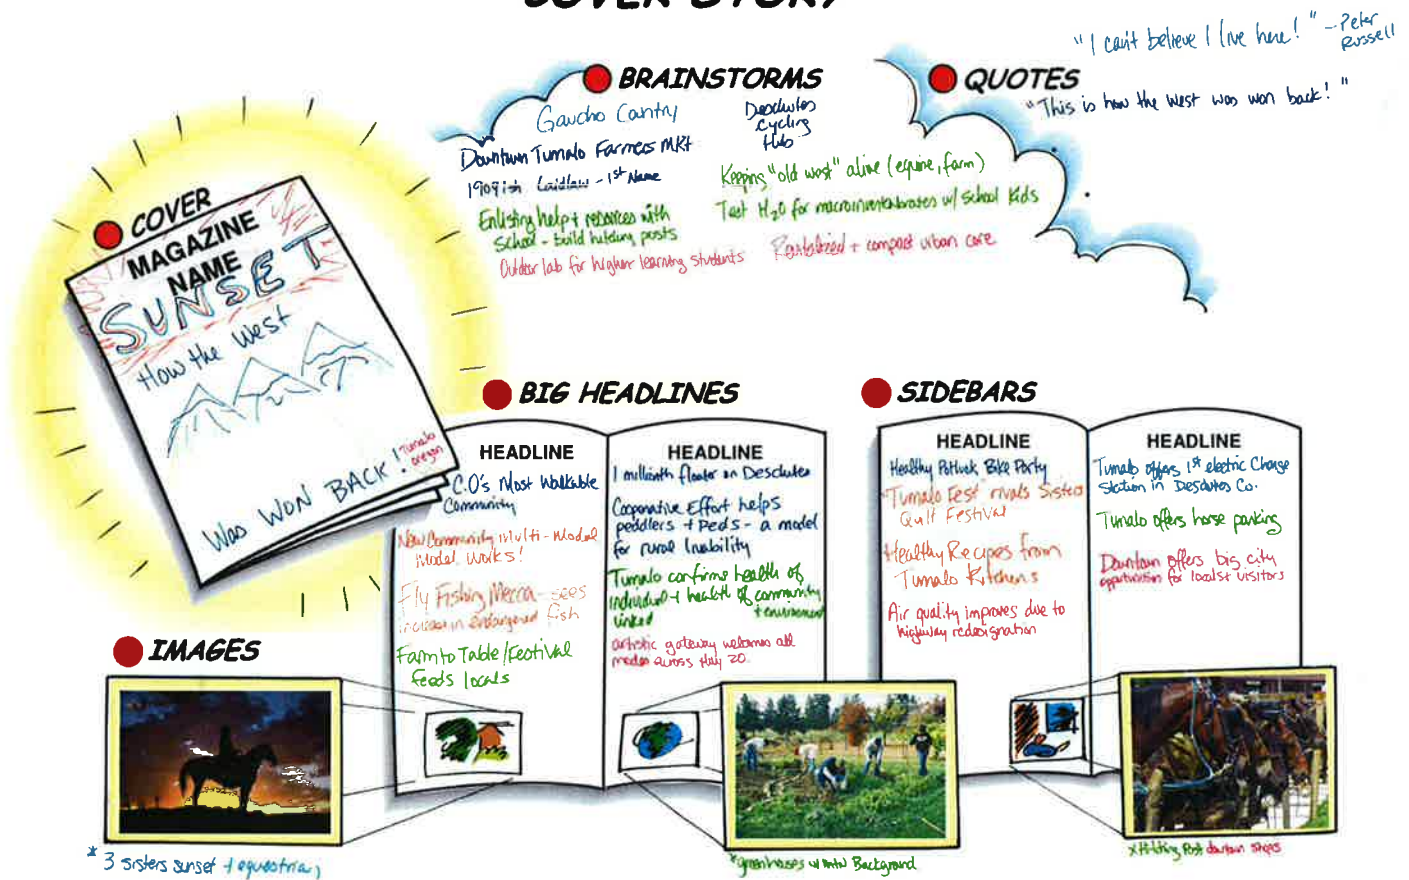 COVER STORY
"I can't believe I live here!" - Peter
Russell
BRAINSTORMS
QUOTES
"This is how the West was won back!"
Gaucho Country
Deschutes
Cycling
Hub
Downtown Tumalo Farmers MKt
1909ish Laidlaw - 1st Name
Keeping "old west" alive (equine, farm)
Enlisting help + resources with
School - build hitching posts
Test H2O for macroinvertebrates w/ School Kids
Outdoor lab for higher learning students
Revitalized + compact urban core
COVER
MAGAZINE
NAME
SUNSET
How the West
Was WON BACK!
Tumalo
Oregon
BIG HEADLINES
HEADLINE
C.O's Most Walkable
Community
New Community Multi-Modal
Model Works!
Fly Fishing Mecca - sees
increase in endangered fish
Farm to Table/Festival
feeds locals
HEADLINE
1 millionth floater on Deschutes
Cooperative Effort helps
peddlers + Peds - a model
for rural livability
Tumalo confirms health of
individual + health of community
+ environment
linked
artistic gateway welcomes all
modes across Hwy 20
SIDEBARS
HEADLINE
Healthy Potluck Bike Party
"Tumalo Fest" rivals Sisters
Quilt Festival
Healthy Recipes from
Tumalo Kitchens
Air quality improves due to
highway redesignation
HEADLINE
Tumalo offers 1st electric Charge
Station in Deschutes Co.
Tumalo offers horse parking
Downtown offers big city
opportunities for locals + visitors
IMAGES
* 3 Sisters sunset + equestrian
* greenhouses w/ mtn Background
* Hitching Post downtown shops